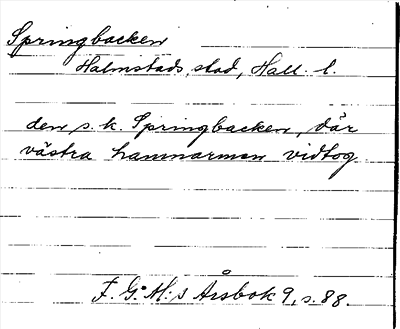 Springbacken
Halmstads stad, Hall. l.
den s.k. Springbacken, där
västra hamnarmen vidtog.
F. G. M:s Årsbok 9, s. 88.